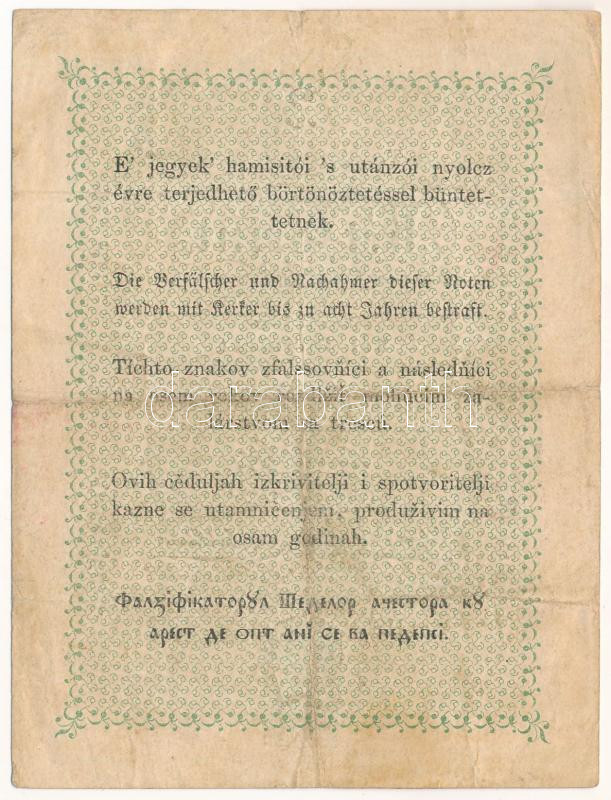 E' jegyek' hamisitói 's utánzói nyolcz
évre terjedhető börtönöztetéssel büntet-
tetnek.
Die Verfälscher und Nachahmer dieser Noten
werden mit Kerker bis zu acht Jahren bestraft.
Tíchto znakov zfalssovňíci a následňíci
na osem rokov
za-
lárstvom sa trescú.
Ovih cěduljah izkrivitelji i spotvoritelji
kazne se utamničenjem, produživim na
osam godinah.
Фалꙁіфікаторꙋл Шеделор ачестора кꙋ
арест де опт ані се ва педепсі.
darabanth